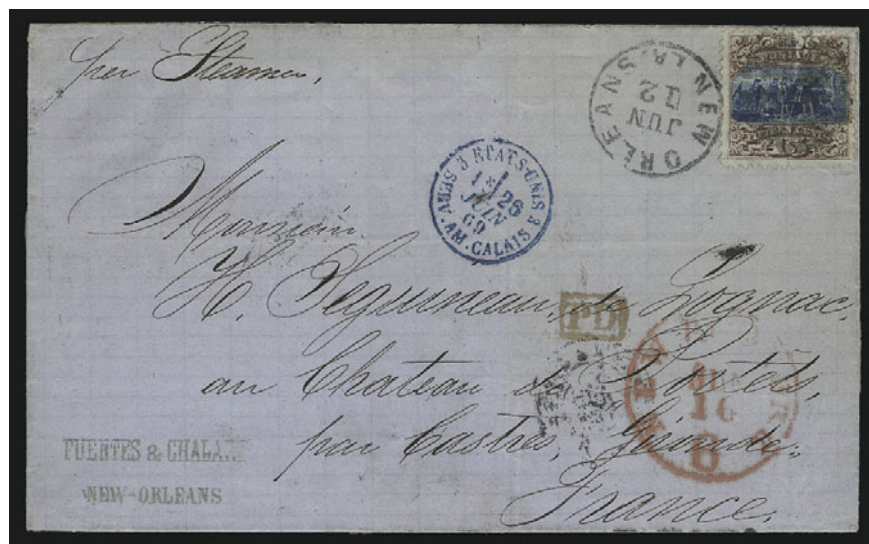 per Steamer,
NEW ORLEANS LA.
JUN
12
3 ETATS-UNIS 3
SERV. AM. CALAIS
26
JUIN
69
Monsieur
H. Seguineau de Lognac,
PD
au Chateau de Portets,
par Castres, Gironde.
France.
NEW
16
6
FUENTES &
NEW-ORLEANS